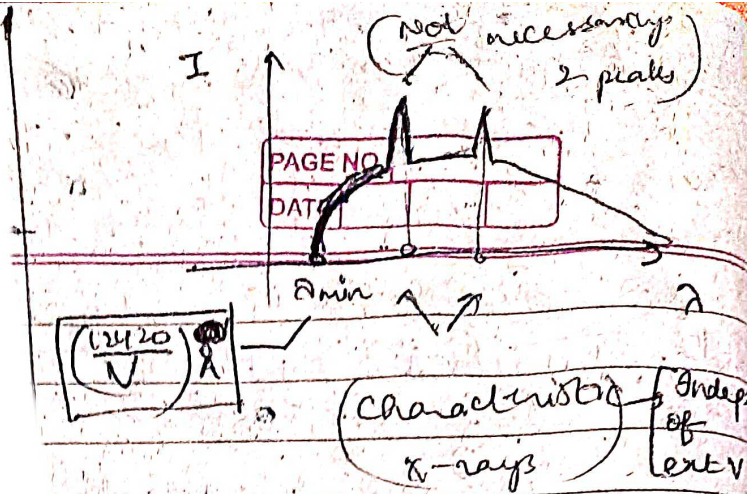 (Not necessary
2 peaks)
I
PAGE NO.
DATE
λmin
λ
(12420/V) Å
Characteristic
x-rays
Indep
of
ext V